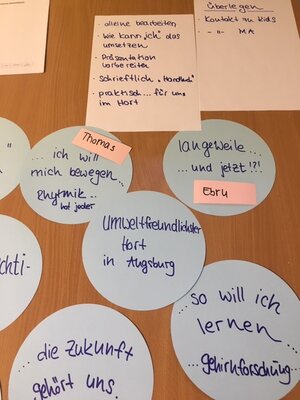 - alleine bearbeiten
- wie kann „ich" das
umsetzen
- Präsentation
vorbereiten
- schrieftlich „Handout"
- praktisch... für uns
im Hort
überlegen
- Kontakt zu Kids
- -"- MA
Thomas
... ich will
mich bewegen...
Rhytmik...
hat jeder
langeweile...
... und jetzt !?!
Ebru
Umweltfreundlichster
Hort
in Augsburg
... so will ich
lernen ...
... gehirnforschung...
... die Zukunft
gehört uns.